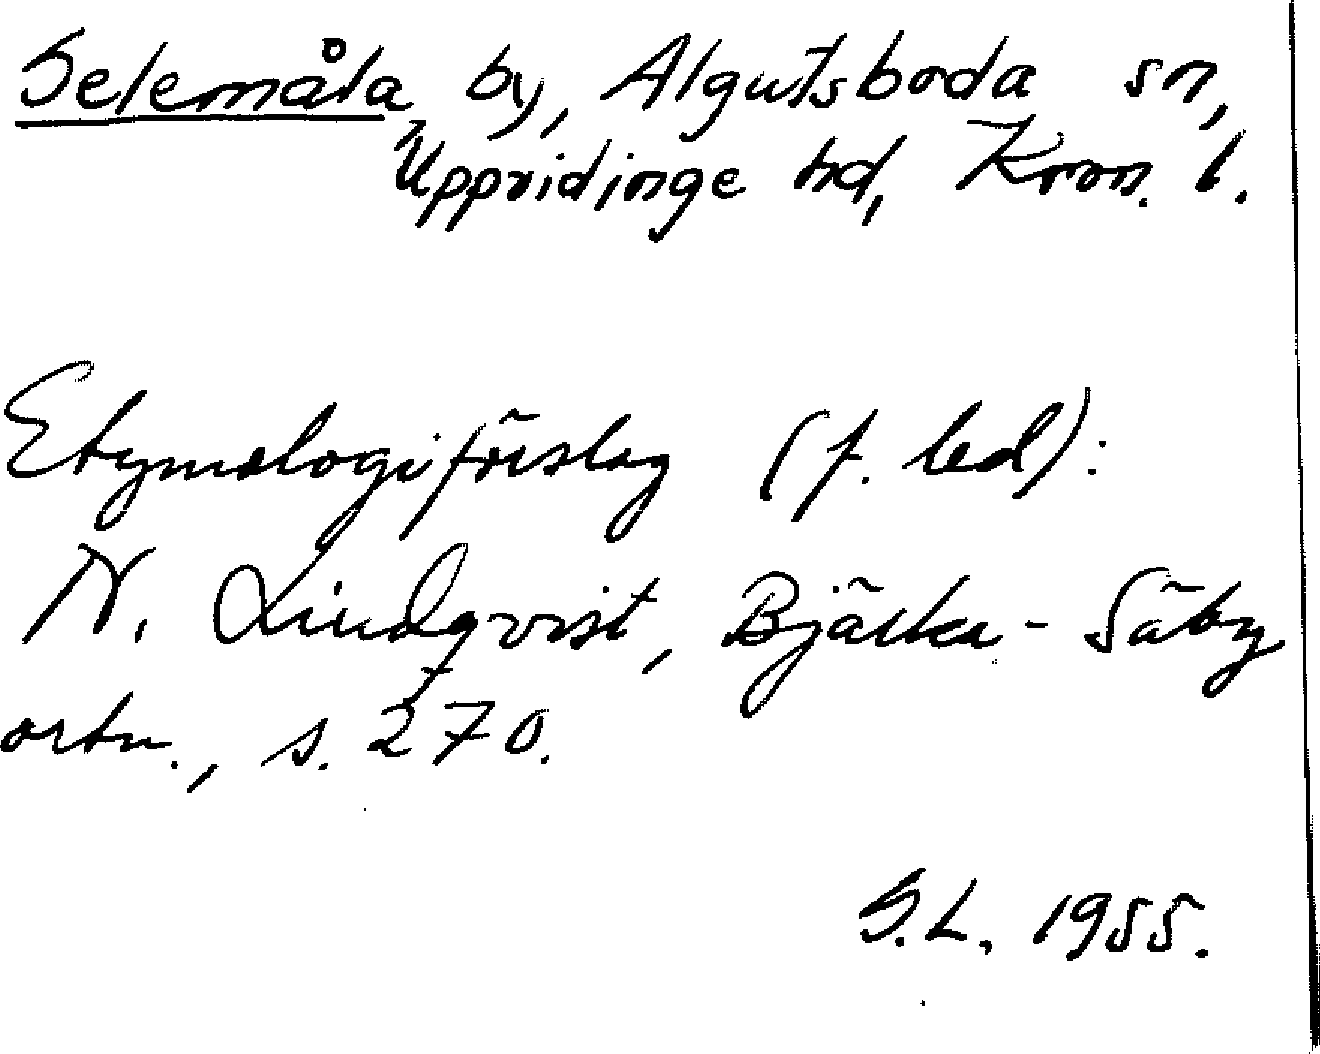 Selemåla by, Algutsboda sn,
Uppvidinge hd, Kron. l.
Etymologiförslag (f. led):
N. Lindqvist, Bjärka-Säby
ortn., s. 270.
S.L. 1955.